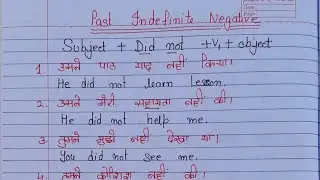 Past Indefinite Negative
Subject + Did not + V₁ + object
1. उसने पाठ याद नहीं किया।
He did not learn lesson.
2. उसने मेरी सहायता नहीं की।
He did not help me.
3. तुमने मुझे नहीं देखा था।
You did not see me.
4. तुमने कोशिश नहीं की।